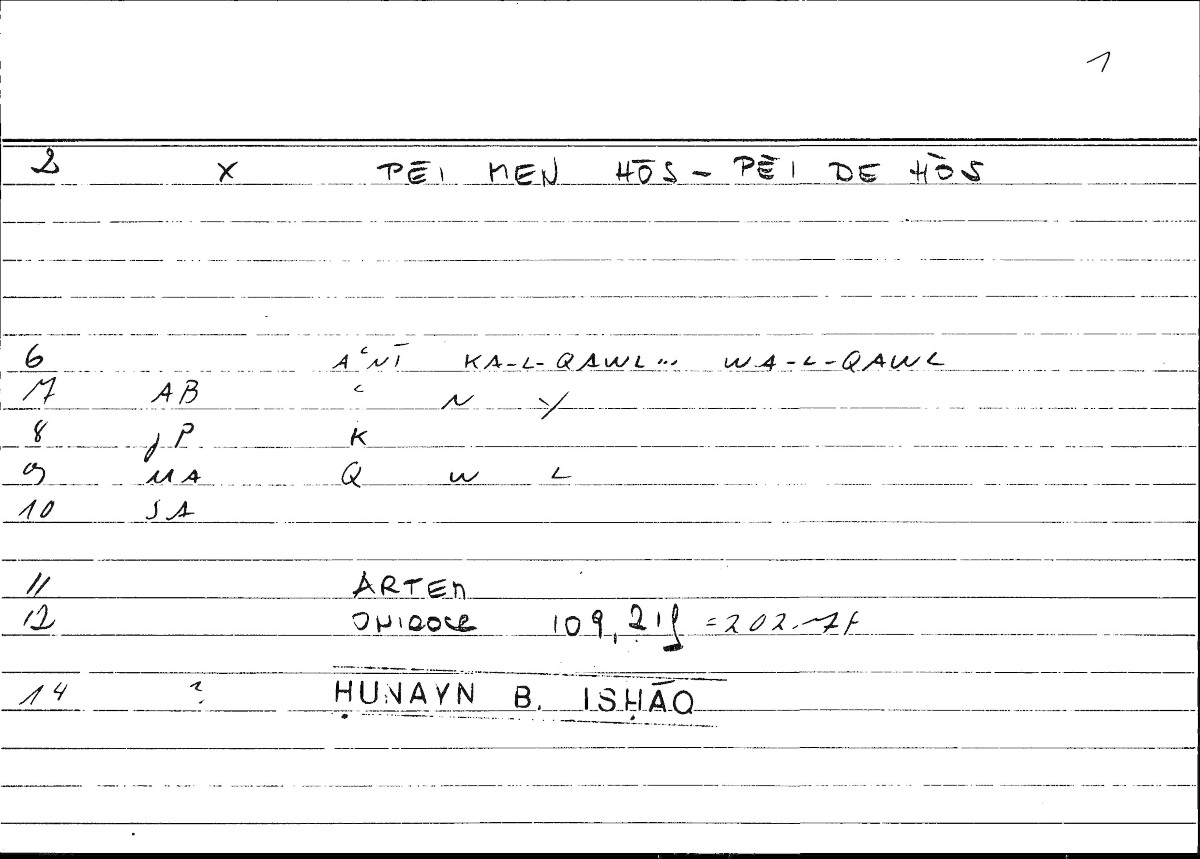 1
2 x PĒI MEN HŌS – PĒI DE HŌS
6 AʿNĪ KA-L-QAWL... WA-L-QAWL
7 AB ʿ N Y
8 JP K
9 MA Q W L
10 SA
11 ARTEM
12 ONIROCR 109, 21f = 202.7f
14 ? ḤUNAYN B. ISḤĀQ